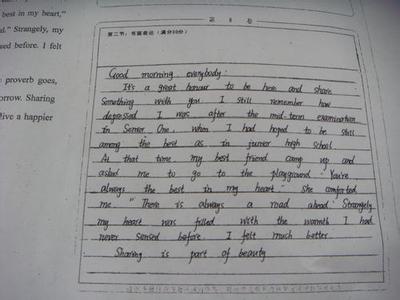 best in my heart,"
d." Strangely, my
sed before. I felt
proverb goes,
orrow. Sharing
live a happier
第二节：书面表达（满分30分）
Good morning, everybody:
It's a great honour to be here and share
something with you. I still remember how
depressed I was after the mid-term examination
in Senior One, when I had hoped to be still
among the best as in junior high school.
At that time my best friend came up and
asked me to go to the playground. "You're
always the best in my heart," she comforted
me. "There is always a road ahead." Strangely,
my heart was filled with the warmth I had
never sensed before. I felt much better.
Sharing is part of beauty